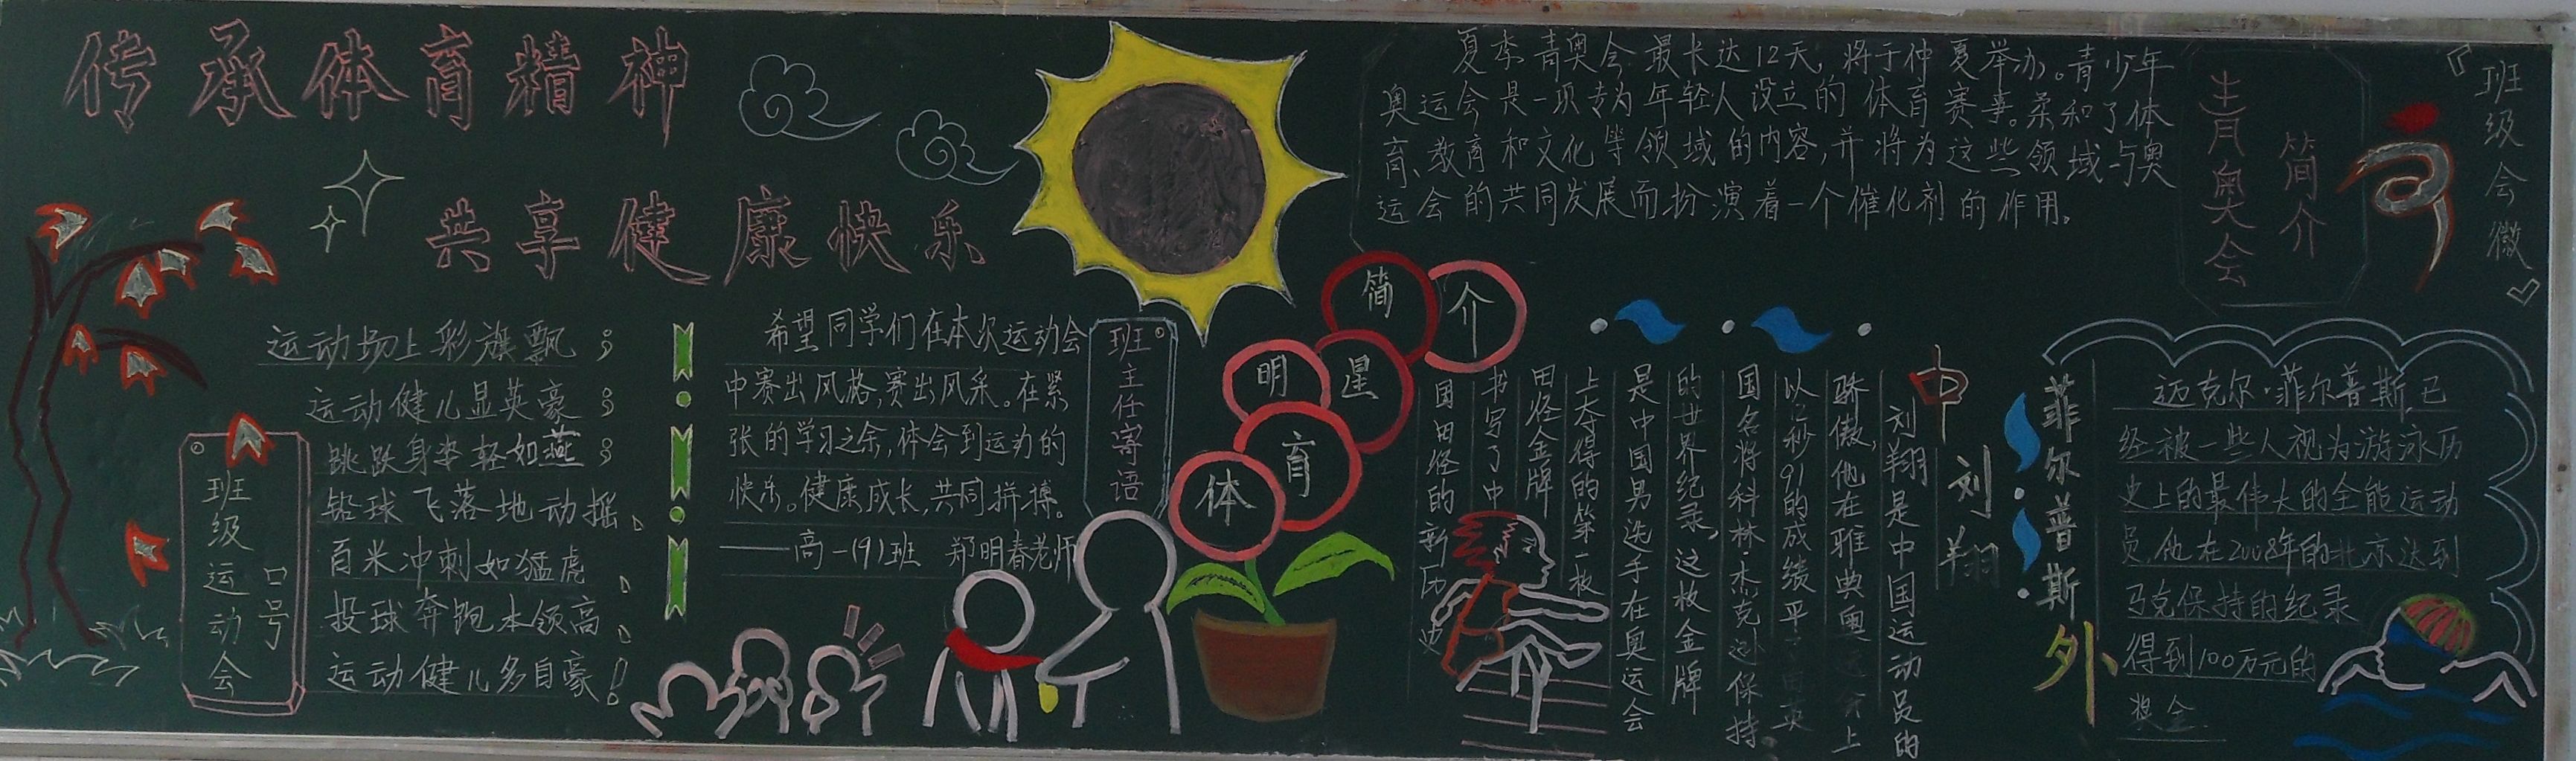 传承体育精神
共享健康快乐
班级运动会
口号
运动场上彩旗飘;
运动健儿显英豪;
跳跃身姿轻如燕;
铅球飞落地动摇、
百米冲刺如猛虎、
投球奔跑本领高、
运动健儿多自豪!
班主任寄语
希望同学们在本次运动会
中赛出风格,赛出风采。在紧
张的学习之余,体会到运动的
快乐。健康成长,共同拼搏。
——高一(9)班 郑明春老师
夏季青奥会最长达12天,将于仲夏举办。青少年
奥运会是一项专为年轻人设立的体育赛事。柔和了体
育、教育和文化等领域的内容,并将为这些领域与奥
运会的共同发展而扮演着一个催化剂的作用。
青奥会
简介
『班级会徽』
体育明星简介
中
刘翔
刘翔是中国运动员的
骄傲,他在雅典奥运会上
以12秒91的成绩平了由英
国名将科林·杰克逊保持
的世界纪录,这枚金牌
是中国男选手在奥运会
上夺得的第一枚
田径金牌
书写了中
国田径的新历史
菲尔普斯
外
迈克尔·菲尔普斯,已
经被一些人视为游泳历
史上的最伟大的全能运动
员,他在2008年的北京达到
马克保持的纪录
得到100万元的
奖金.